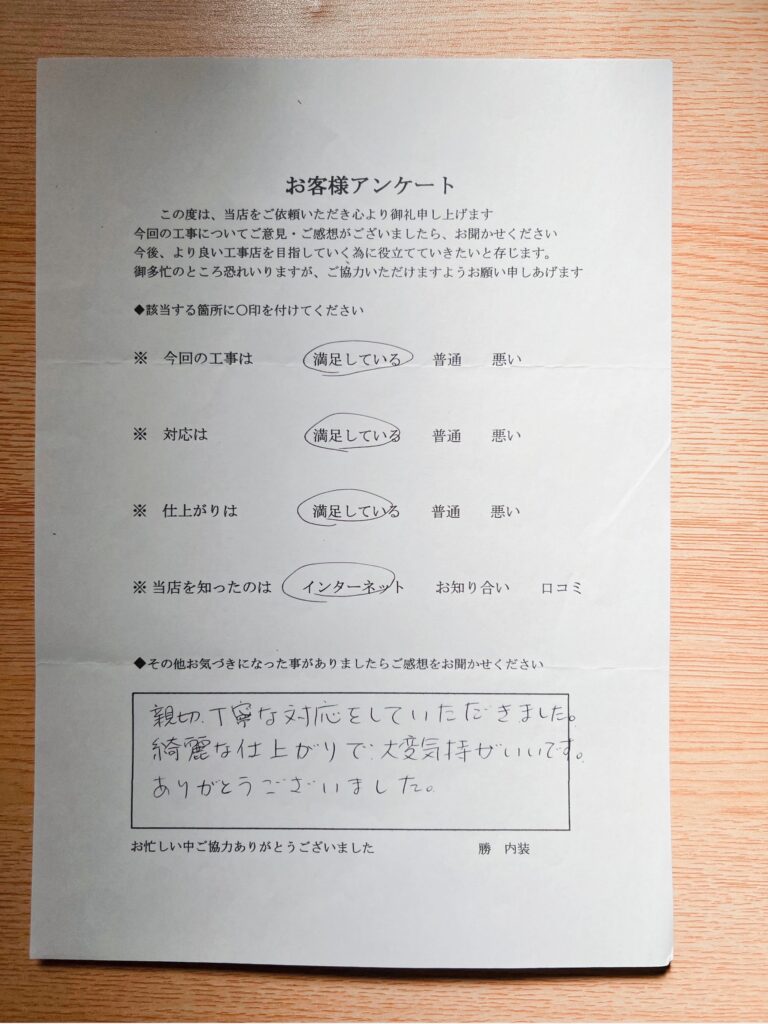 お客様アンケート
この度は、当店をご依頼いただき心より御礼申し上げます
今回の工事についてご意見・ご感想がございましたら、お聞かせください
今後、より良い工事店を目指していく為に役立てていきたいと存じます。
御多忙のところ恐れいりますが、ご協力いただけますようお願い申しあげます
◆該当する箇所に〇印を付けてください
※ 今回の工事は 満足している 普通 悪い
※ 対応は 満足している 普通 悪い
※ 仕上がりは 満足している 普通 悪い
※ 当店を知ったのは インターネット お知り合い 口コミ
◆その他お気づきになった事がありましたらご感想をお聞かせください
親切、丁寧な対応をしていただきました。
綺麗な仕上がりで、大変気持がいいです。
ありがとうございました。
お忙しい中ご協力ありがとうございました 勝 内装